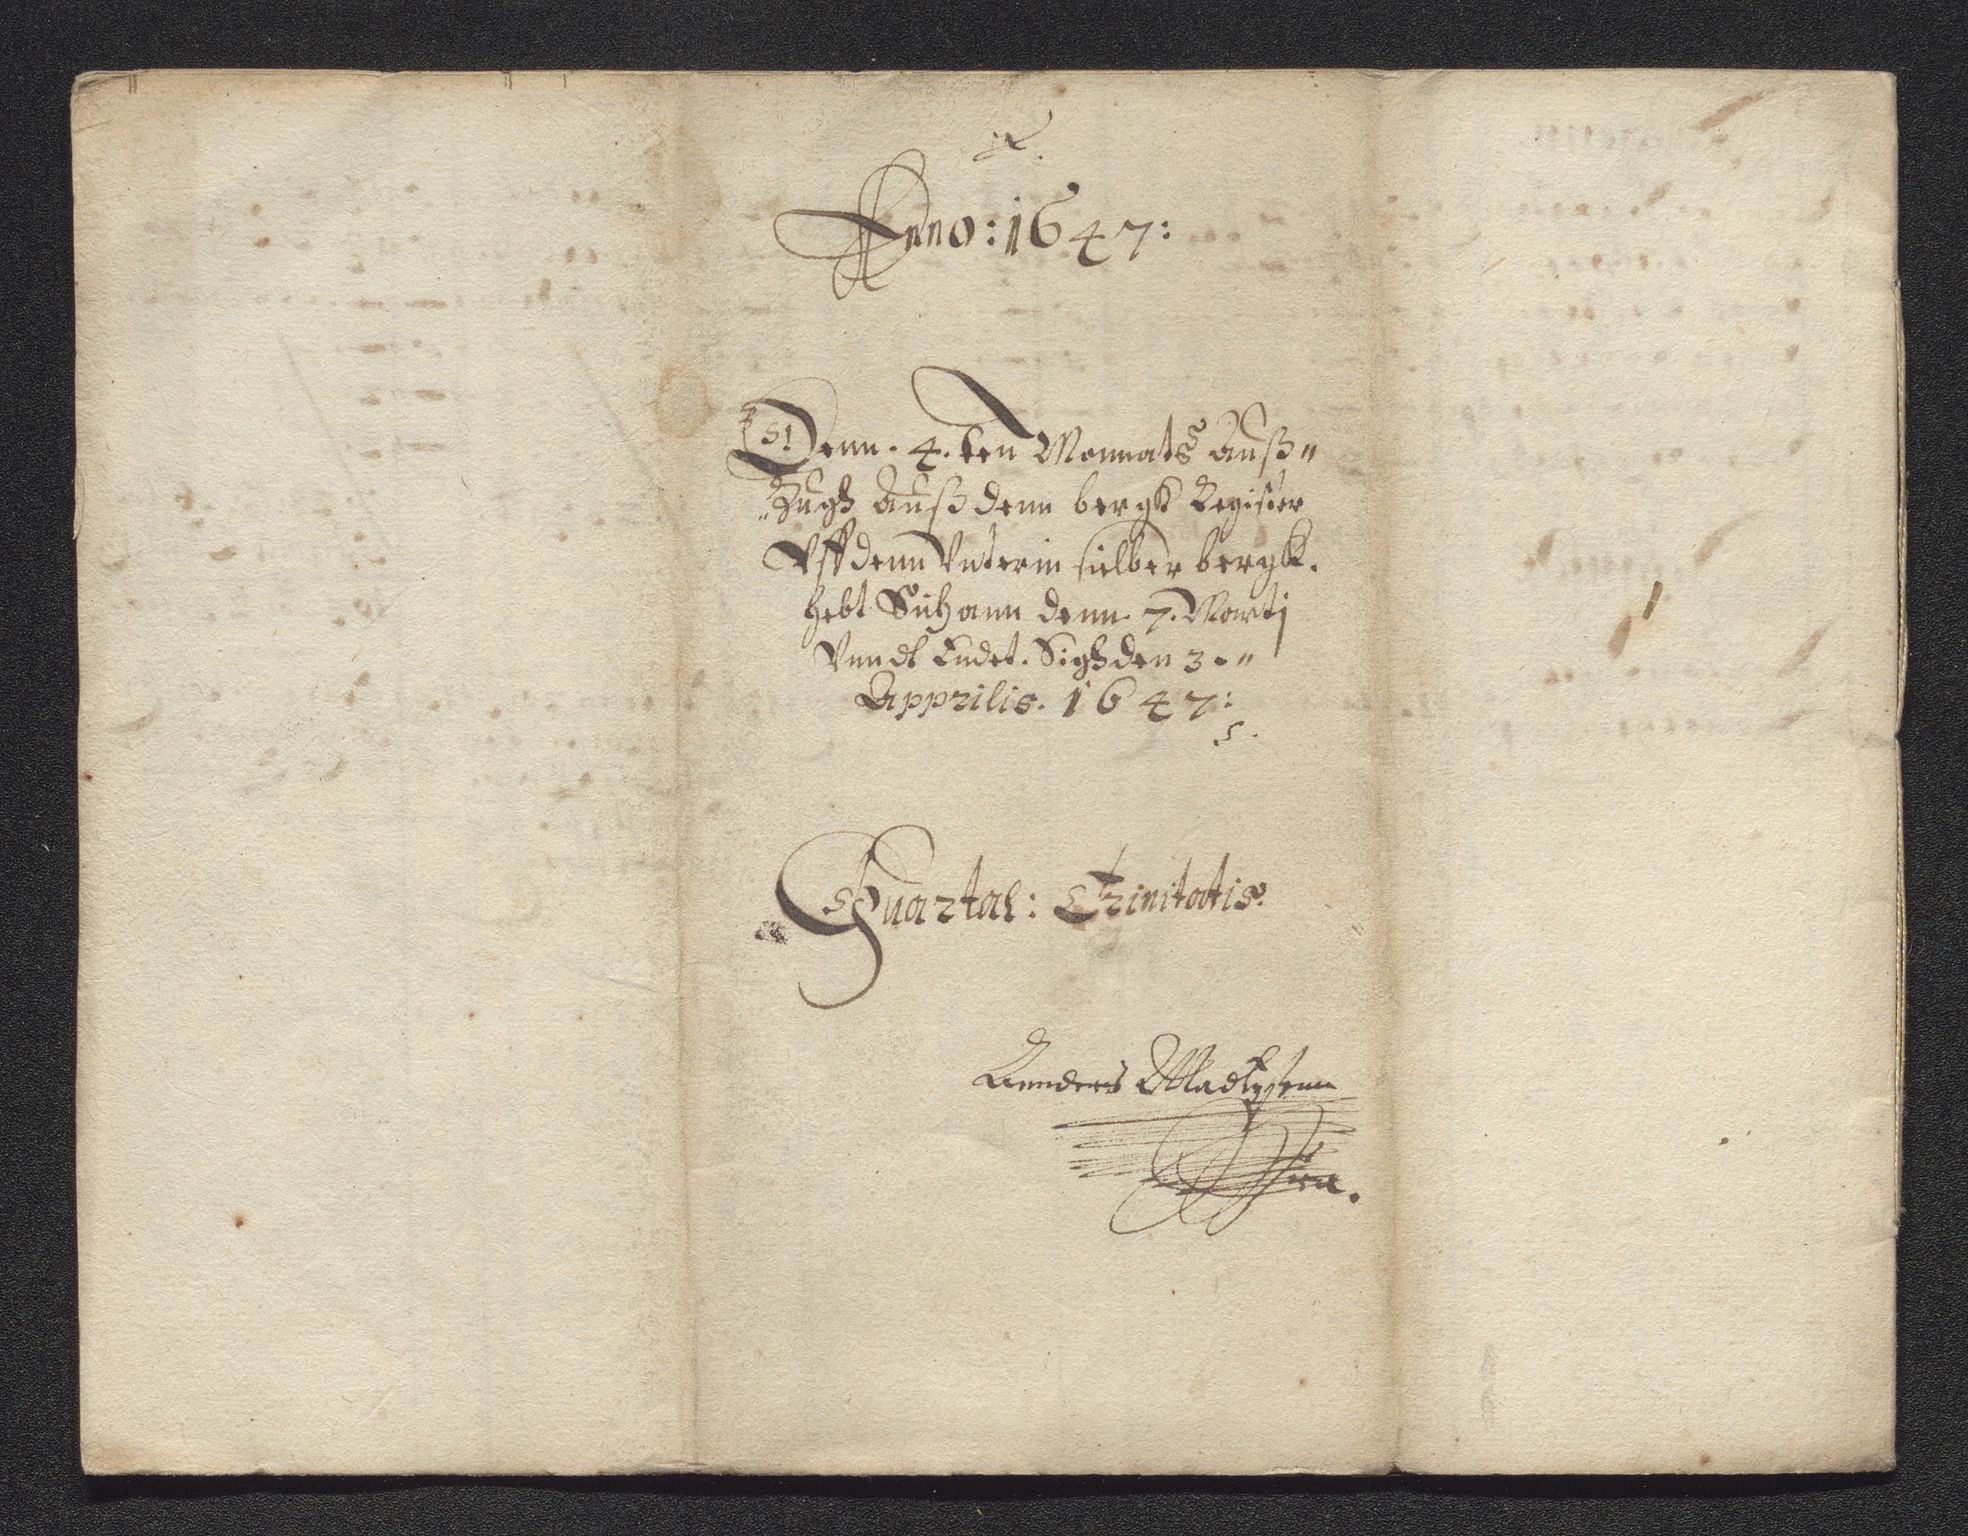 Anno: 1647:
Denn. 4. ten Monnats Auß"
"Zugh Auß denn bergk Register
Vff denn Vnterin silber bergk.
hebt Sich ann denn. 7. Martj
Vnndt Endet. Sigh den 3."
Apprilis. 1647:
Quartal: Trinitatis:
Annders Madtzsenn